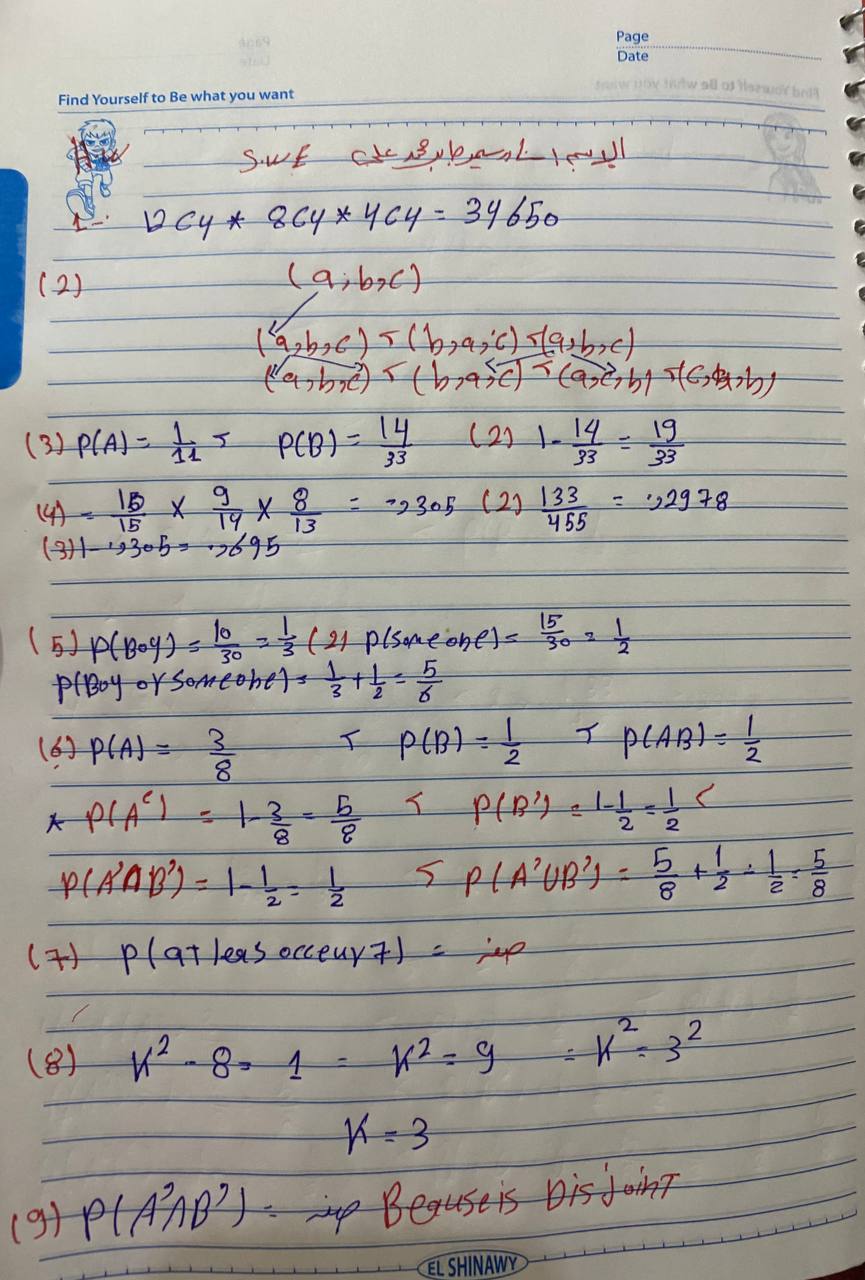 Page
Date
Find Yourself to Be what you want
H.W
S.W.E الاسم
1- 12C4 * 8C4 * 4C4 = 34650
(2) (a,b,c)
(a,b,c) , (b,a,c) , (a,b,c)
(a,b,c) , (b,a,c) , (a,c,b) , (c,a,b)
(3) P(A) = 1/11 , P(B) = 14/33 (2) 1 - 14/33 = 19/33
(4) = 15/15 × 9/14 × 8/13 = 0,305 (2) 133/455 = 0,2978
(3) 1 - 0,305 = 0,695
(5) P(Boy) = 10/30 = 1/3 (2) P(someone) = 15/30 = 1/2
P(Boy or Someone) = 1/3 + 1/2 = 5/6
(6) P(A) = 3/8 , P(B) = 1/2 , P(AB) = 1/2
* P(A^c) = 1 - 3/8 = 5/8 , P(B') = 1 - 1/2 = 1/2 <
P(A'∩B') = 1 - 1/2 = 1/2 , P(A'∪B') = 5/8 + 1/2 - 1/2 = 5/8
(7) P(at leas occeur 7) = صفر
(8) K² - 8 = 1 = K² = 9 = K² = 3²
K = 3
(9) P(A'∩B') = صفر Beause is Disjoint
EL SHINAWY